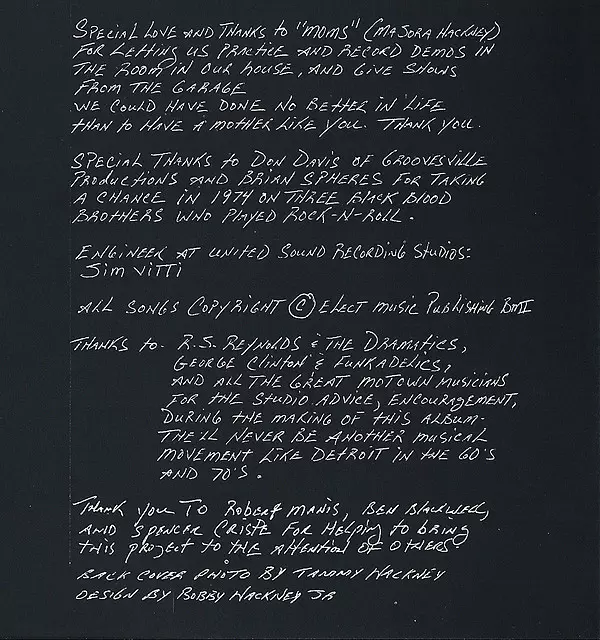 SPECIAL LOVE AND THANKS to "MOMS" (MAJORA HACKNEY)
FOR LETTING US PRACTICE AND RECORD DEMOS IN
THE ROOM IN OUR HOUSE, AND GIVE SHOWS
FROM THE GARAGE
WE COULD HAVE DONE NO BETTER IN LIFE
THAN to HAVE A MOTHER LIKE YOU. THANK YOU.
SPECIAL THANKS to DON DAVIS OF GROOVESVILLE
PRODUCTIONS AND BRIAN SPHERES FOR TAKING
A CHANCE IN 1974 ON THREE BLACK BLOOD
BROTHERS WHO PLAYED ROCK-N-ROLL.
ENGINEER AT UNITED SOUND RECORDING STUDIOS:
JIM VITTI
ALL SONGS COPYRIGHT © ELECT MUSIC PUBLISHING BMI
THANKS to- R.S. REYNOLDS & THE DRAMATICS,
GEORGE CLINTON & FUNKADELICS,
AND ALL THE GREAT MOTOWN MUSICIANS
FOR THE STUDIO ADVICE, ENCOURAGEMENT,
DURING THE MAKING OF THIS ALBUM-
THE'LL NEVER BE ANOTHER MUSICAL
MOVEMENT LIKE DETROIT IN THE 60'S
AND 70'S.
THANK YOU TO ROBERT MANIS, BEN BLACKWELL,
AND SPENCER CRISTE FOR HELPING to BRING
THIS PROJECT TO THE ATTENTION OF OTHERS.
BACK COVER PHOTO BY TAMMY HACKNEY
DESIGN BY BOBBY HACKNEY JR